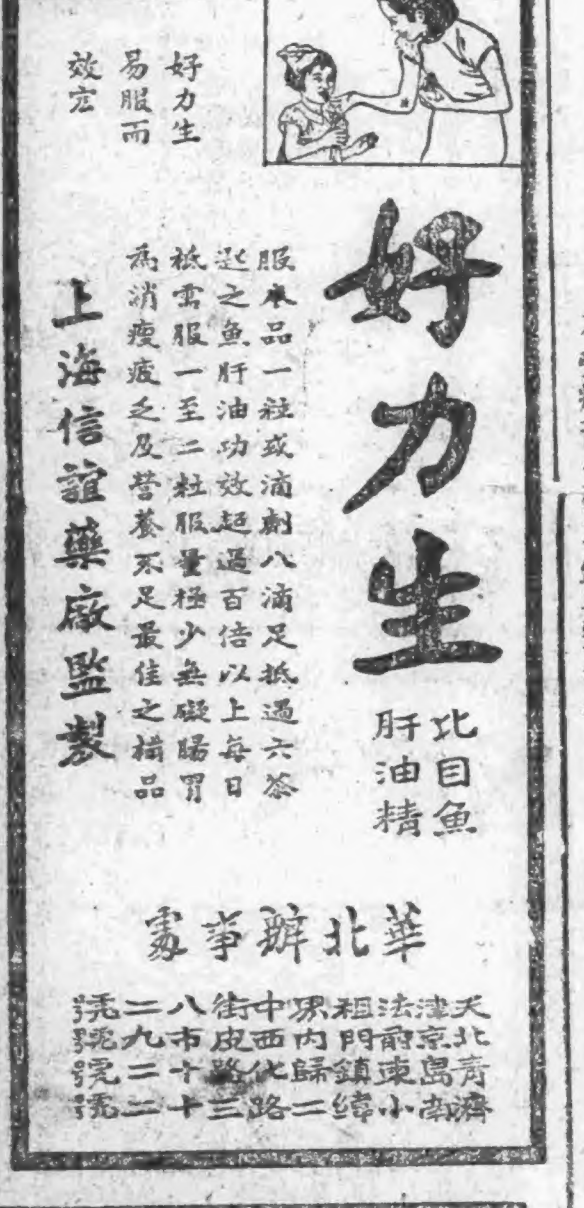 好力生
易服而
效宏
好力生
比目魚
肝油精
服本品一粒或滴劑八滴足抵過六茶
匙之魚肝油功效超過百倍以上每日
祇需服一至二粒服量極少無礙腸胃
為消瘦疲乏及營養不足最佳之補品
上海信誼藥廠監製
華北辦事處
天津法租界中街八二號
北京前門內西皮市九號
青島東鎮歸化路十二號
濟南小緯二路三十二號